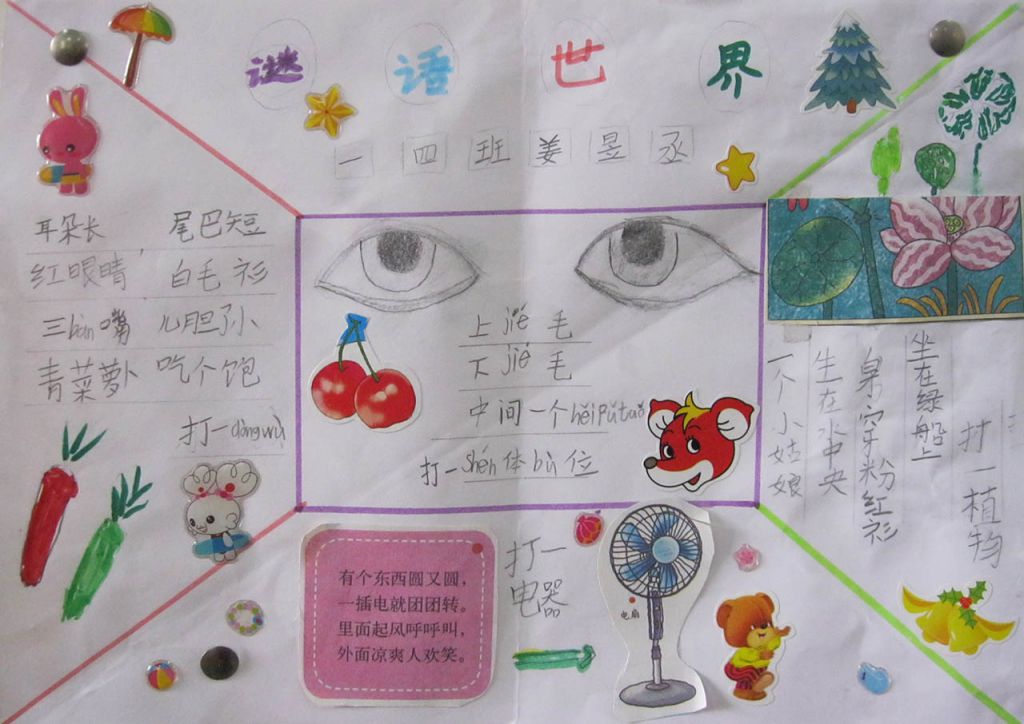 谜语世界
一四班姜昱丞
耳朵长, 尾巴短
红眼睛 白毛衫
三bàn嘴 儿胆小
青菜萝卜 吃个饱
打一dòngwù
上jié毛
下jié毛
中间一个hēipútaó
打一shēn体bù位
一个小姑娘
生在水中央
身穿粉红衫
坐在绿船上
打一植物
有个东西圆又圆,
一插电就团团转。
里面起风呼呼叫,
外面凉爽人欢笑。
打一
电器
电扇